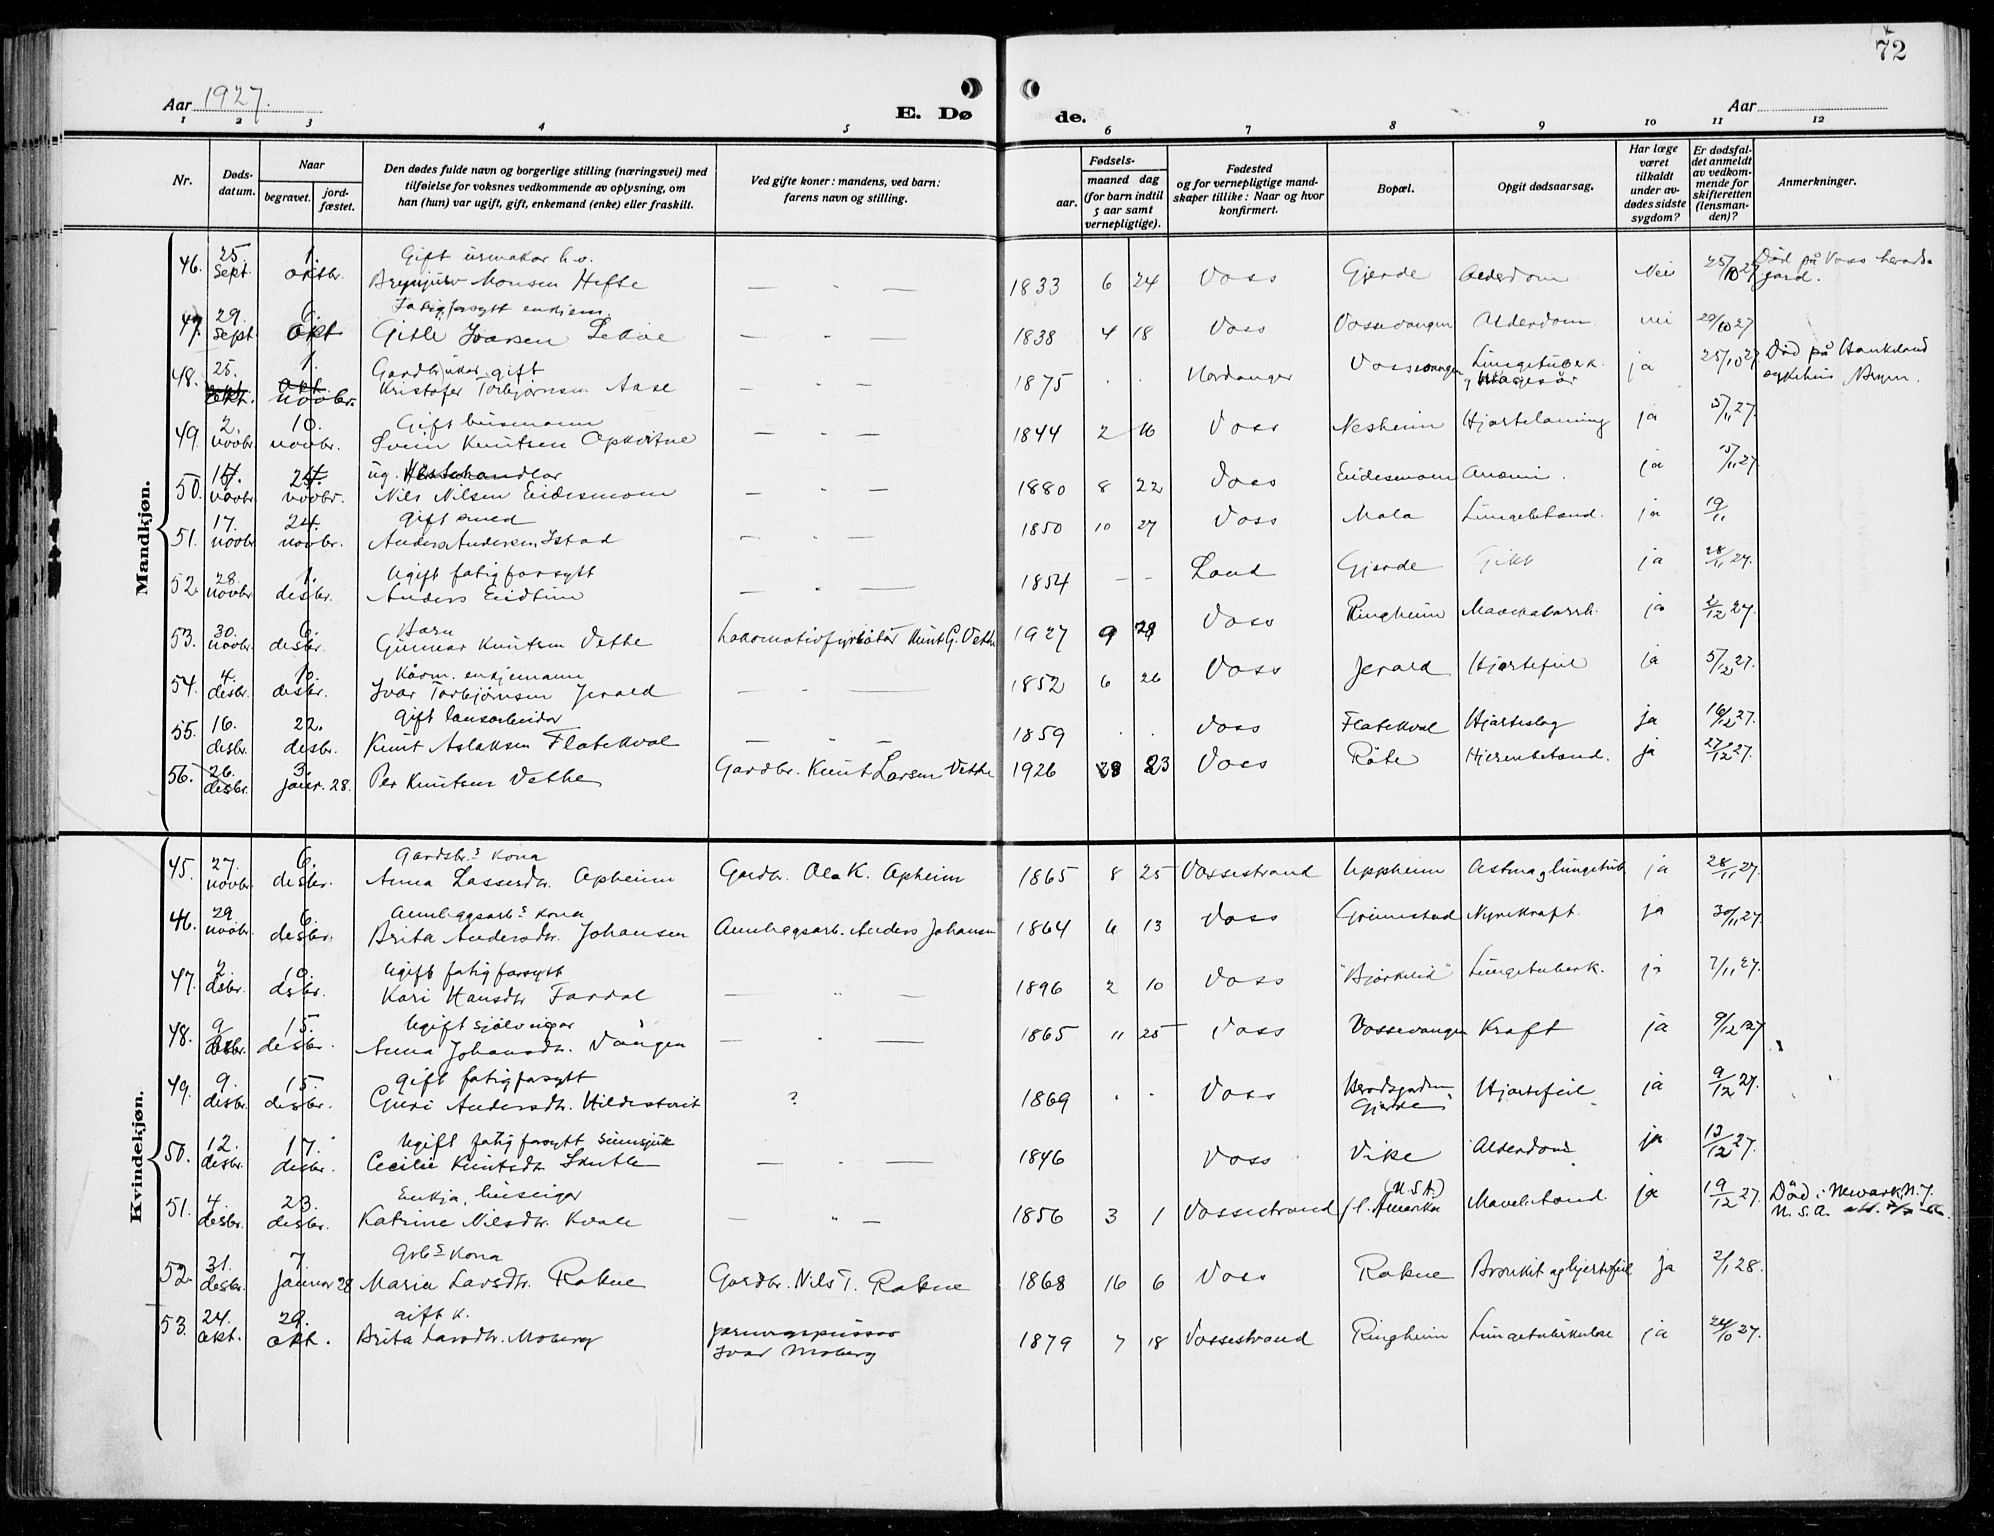 72
Aar 1927.
E. Dø
de.
Aar
1 2 3 4 5 6 7 8 9 10 11 12
Nr.
Døds-
datum.
Naar
begravet.
jord-
fæstet.
Den dødes fulde navn og borgerlige stilling (næringsvei) med
tilføielse for voksnes vedkommende av oplysning, om
han (hun) var ugift, gift, enkemand (enke) eller fraskilt.
Ved gifte koner: mandens, ved barn:
farens navn og stilling.
Fødsels-
aar.
maaned dag
(for barn indtil
5 aar samt
vernepligtige).
Fødested
og for vernepligtige mand-
skaper tillike: Naar og hvor
konfirmert.
Bopæl.
Opgit dødsaarsag.
Har læge
været
tilkaldt
under av-
dødes sidste
sygdom?
Er dødsfal-
det anmeldt
av vedkom-
mende for
skifteretten
(lensman-
den)?
Anmerkninger.
Mandkjøn.
25. 1. Gift urmakar h.v. Død på Voss herads-
46. Sept. oktbr. Brynjulv Monsen Hefte — - — 1833 6 24 Voss Gjerde Alderdom Nei 25/10 27 gard.
29. 6. Fatigforsytt enkjem.
47. Sept. Okt Gitle Ivarsen 1838 4 18 Voss Vossevangen Alderdom nei 29/10 27
25. 1. Gardbrukar gift Lungetuberk. Død på Haukeland
48. okt. novbr. Kristofer Torbjørnsen Aase — - — 1875 . . Hardanger Vossevangen og ja 25/10 27 sykehus Bergen.
2. 10. Gift husmann
49. novbr. novbr. Svein Knutsen Opkvitne — - — 1844 2 16 Voss Nesheim Hjartelaming ja 5/11 27.
ug.
50. novbr. novbr. Nils Nilsen Eidesmoen — - — 1880 8 22 Voss Eidesmoen Anæmi. ja 15/11 27
17. 24. Gift smed
51. novbr novbr. Anders Andersen Istad — - — 1850 10 27 Voss Mala Lungebetend. ja 19/11
28. 1. Ugift fatigforsytt
52. novbr desbr. Anders Eidtun - — 1854 — - Land Gjerde Gikt ja 28/11 27.
30. 6. Barn
53. novbr. desbr. Gunnar Knutsen Vethe Lokomotivfyrbøtar Knut G. Vethe 1927 9 29 Voss Ringheim Mavekatarrh. ja 2/12 27.
4. 10. Kårm. enkjemann
54. desbr. desbr. Ivar Torbjørnsen Jerald — - — 1852 6 26 Voss Jerald Hjartefeil ja 5/12 27.
16. 22. Gift lausarbeidar
55. desbr. desbr. Knut Aslaksen Flatekval — - — 1859 . . Voss Flatekval Hjarteslag ja 16/12 27.
26. 3.
56. desbr. janr. 28. Per Knutsen Vethe Gardbr. Knut Larsen Vethe 1926 23 Voss Røte Hjernebetend. ja 27/12 27.
Kvindekjøn.
27. 6. Gardsbr.s kona
45. novbr. desbr. Anna Lassesdtr. Opheim Gardbr. Ola K. Opheim 1865 8 25 Vossestrand Uppheim Astma og lungetub ja 28/11 27.
29 6. Annleggsarb.s kona
46. novbr. desbr. Brita Andersdtr. Johansen Annleggsarb. Anders Johansen 1864 6 13 Voss Grimestad Nyrekraft. ja 30/11 27.
2. 10. Ugift fatigforsytt
47. desbr. desbr. Kari Hansdtr Fardal — " — 1896 2 10 Voss "Bjørkelid" Lungetuberk. ja 2/11 27.
9 15. Ugift sjølveigar
48. desbr. desbr. Anna Johansdtr. Vangen — . — 1865 11 25 Voss Vossevangen Kraft ja 9/12 27
9. 15. Gift fatigforsytt Heradsgarden
49. desbr. desbr. Guri Andersdtr. Hildestveit ? 1869 . . Voss Gjerde Hjartefeil ja 9/12 27.
12. 17. Ugift fatigforsytt sinnsjuk
50. desbr. desbr. Cecilie Knutsdtr Skutle — . — 1846 Voss Vike Alderdom ja 13/12 27.
4. 23. Enkja, huseigar (U.S.A.) Død i Newark N.J.
51. desbr. desbr. Katrine Nilsdtr. Kvale — " — 1856 3 1 Vossestrand Amerika Mavebetend. ja 19/12 27. U.S.A.
31. 7. Grb.s kona
52. desbr. Januar 28 Maria Larsdtr. Rokne Gardbr. Nils T. Rokne 1868 16 6 Voss Rokne Bronkit og hjertefeil ja 2/1 28.
24. 29. gift k.
53. Okt. Okt. Brita Larsdtr. Moberg 1879 7 18 Vossestrand Ringheim Lungetuberkulose ja 24/10 27.
Ivar Moberg